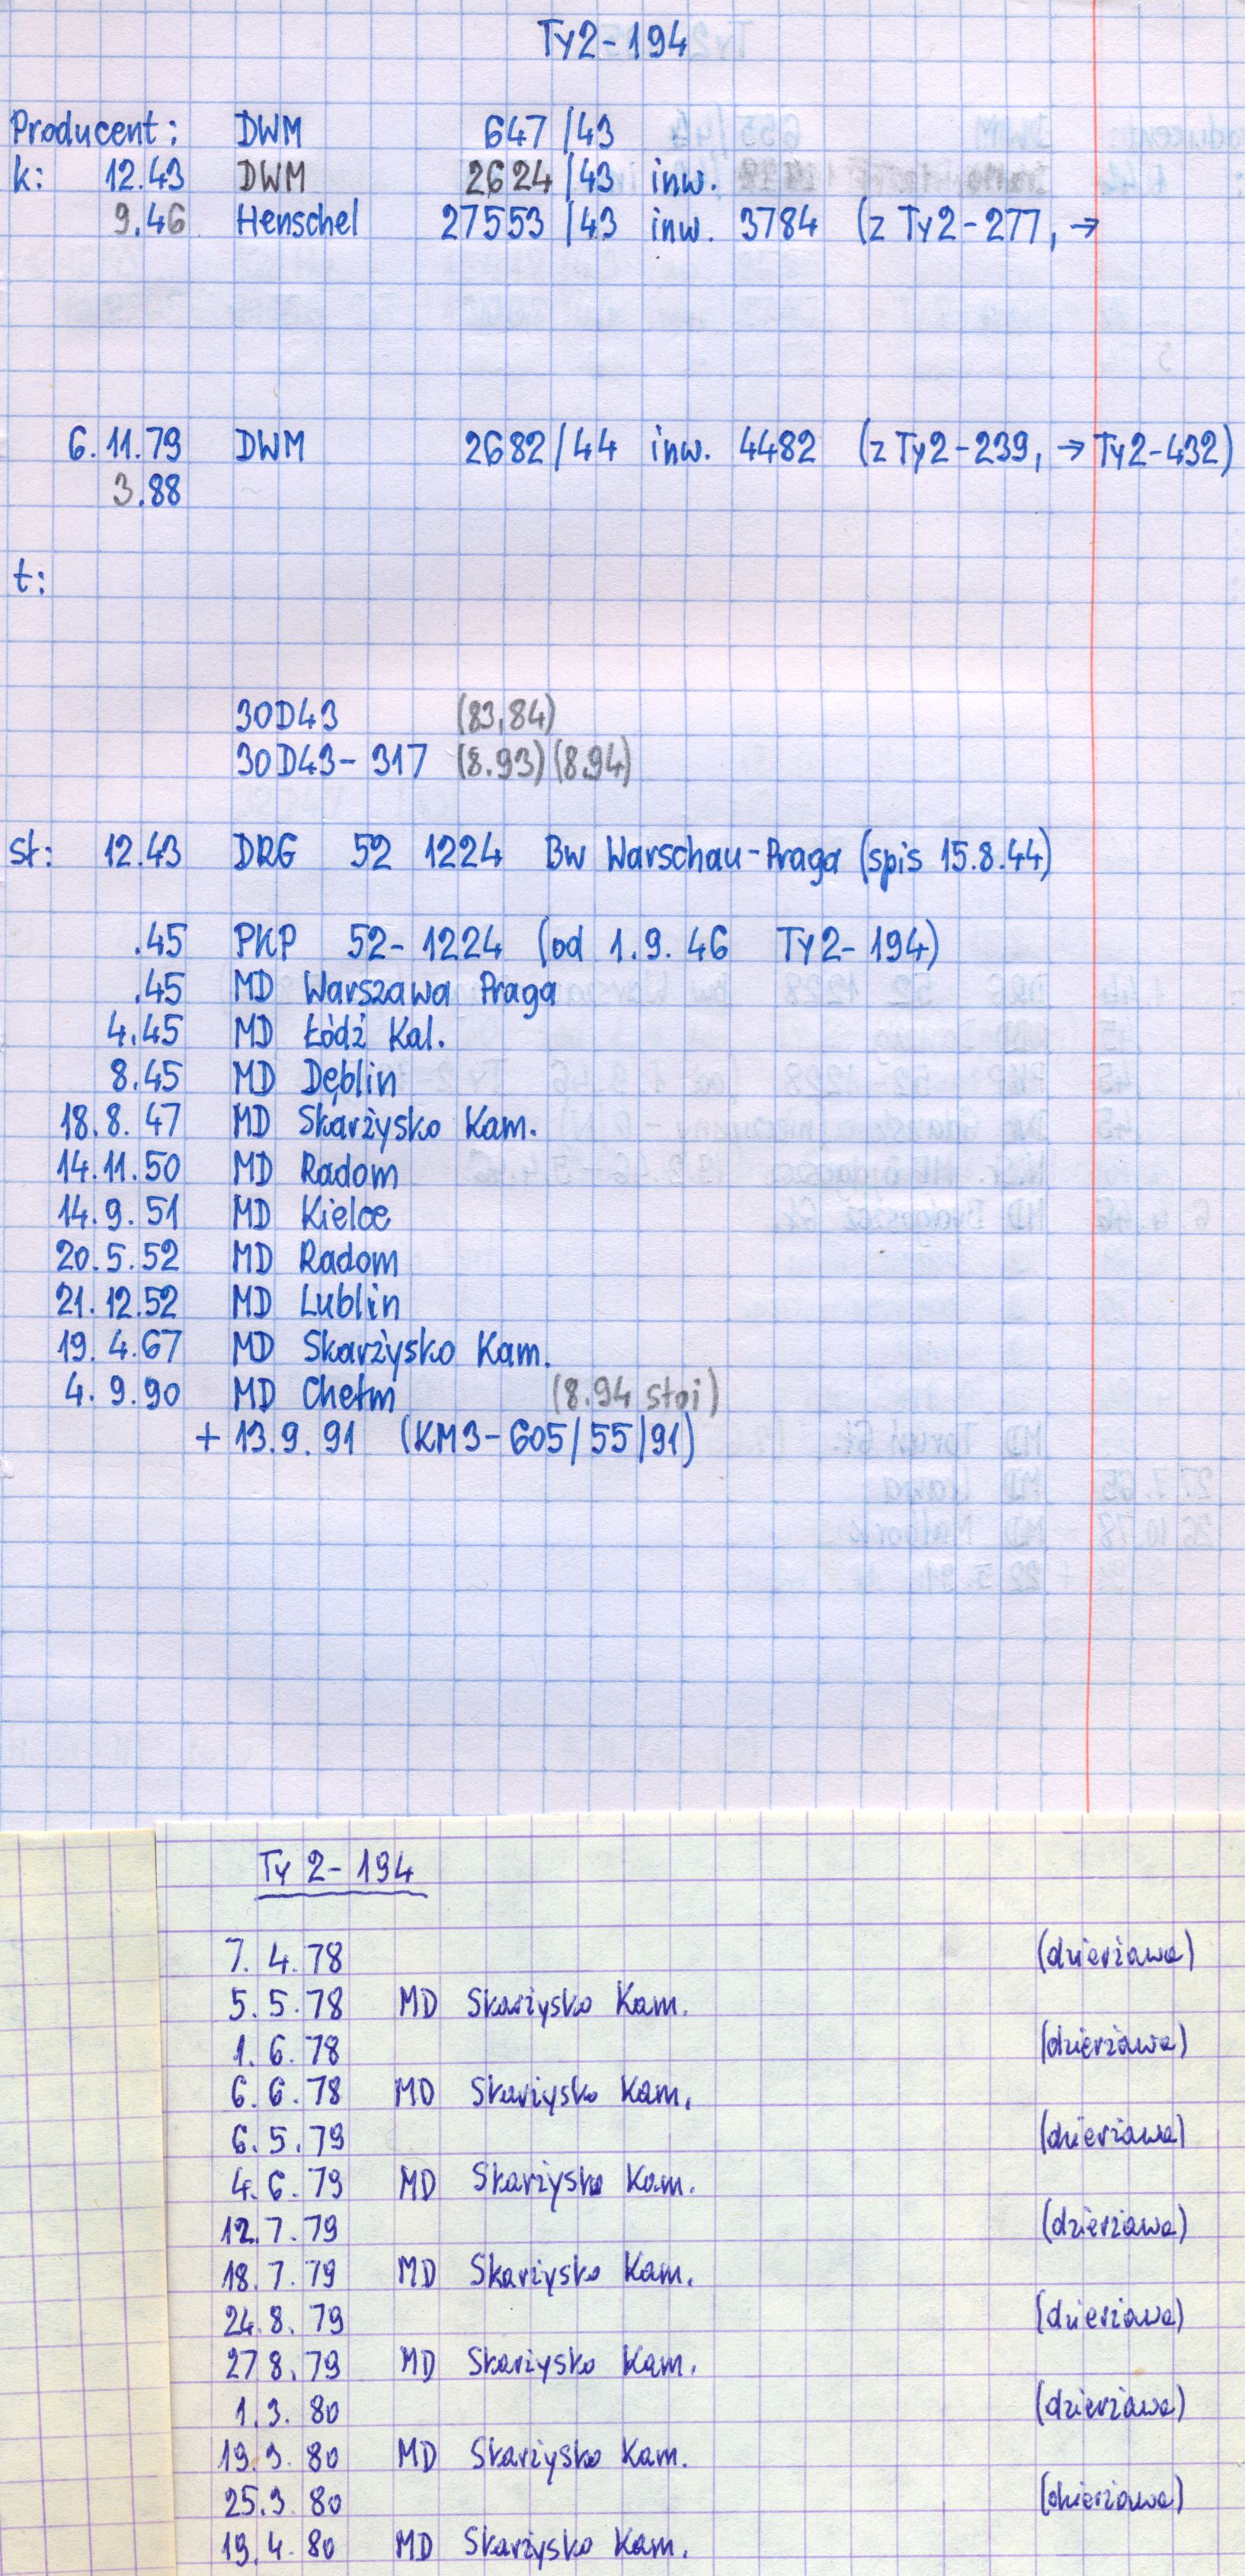 Ty2-194
Producent: DWM 647/43
k: 12.43 DWM 2624/43 inw.
9.46 Henschel 27553/43 inw. 3784 (z Ty2-277, →
6.11.79 DWM 2682/44 inw. 4482 (z Ty2-239, → Ty2-432)
3.88
t:
30D43 (83,84)
30D43-317 (8.93) (8.94)
st: 12.43 DRG 52 1224 Bw Warschau-Praga (spis 15.8.44)
.45 PKP 52-1224 (od 1.9.46 Ty2-194)
.45 MD Warszawa Praga
4.45 MD Łódź Kal.
8.45 MD Dęblin
18.8.47 MD Skarżysko Kam.
14.11.50 MD Radom
14.9.51 MD Kielce
20.5.52 MD Radom
21.12.52 MD Lublin
19.4.67 MD Skarżysko Kam.
4.9.90 MD Chełm (8.94 stoi)
+ 13.9.91 (KM3-605/55/91)
Ty 2-194
7.4.78 (dzierżawa)
5.5.78 MD Skarżysko Kam.
1.6.78 (dzierżawa)
6.6.78 MD Skarżysko Kam.
6.5.79 (dzierżawa)
4.6.79 MD Skarżysko Kam.
12.7.79 (dzierżawa)
18.7.79 MD Skarżysko Kam.
24.8.79 (dzierżawa)
27.8.79 MD Skarżysko Kam.
1.3.80 (dzierżawa)
19.3.80 MD Skarżysko Kam.
25.3.80 (dzierżawa)
19.4.80 MD Skarżysko Kam.